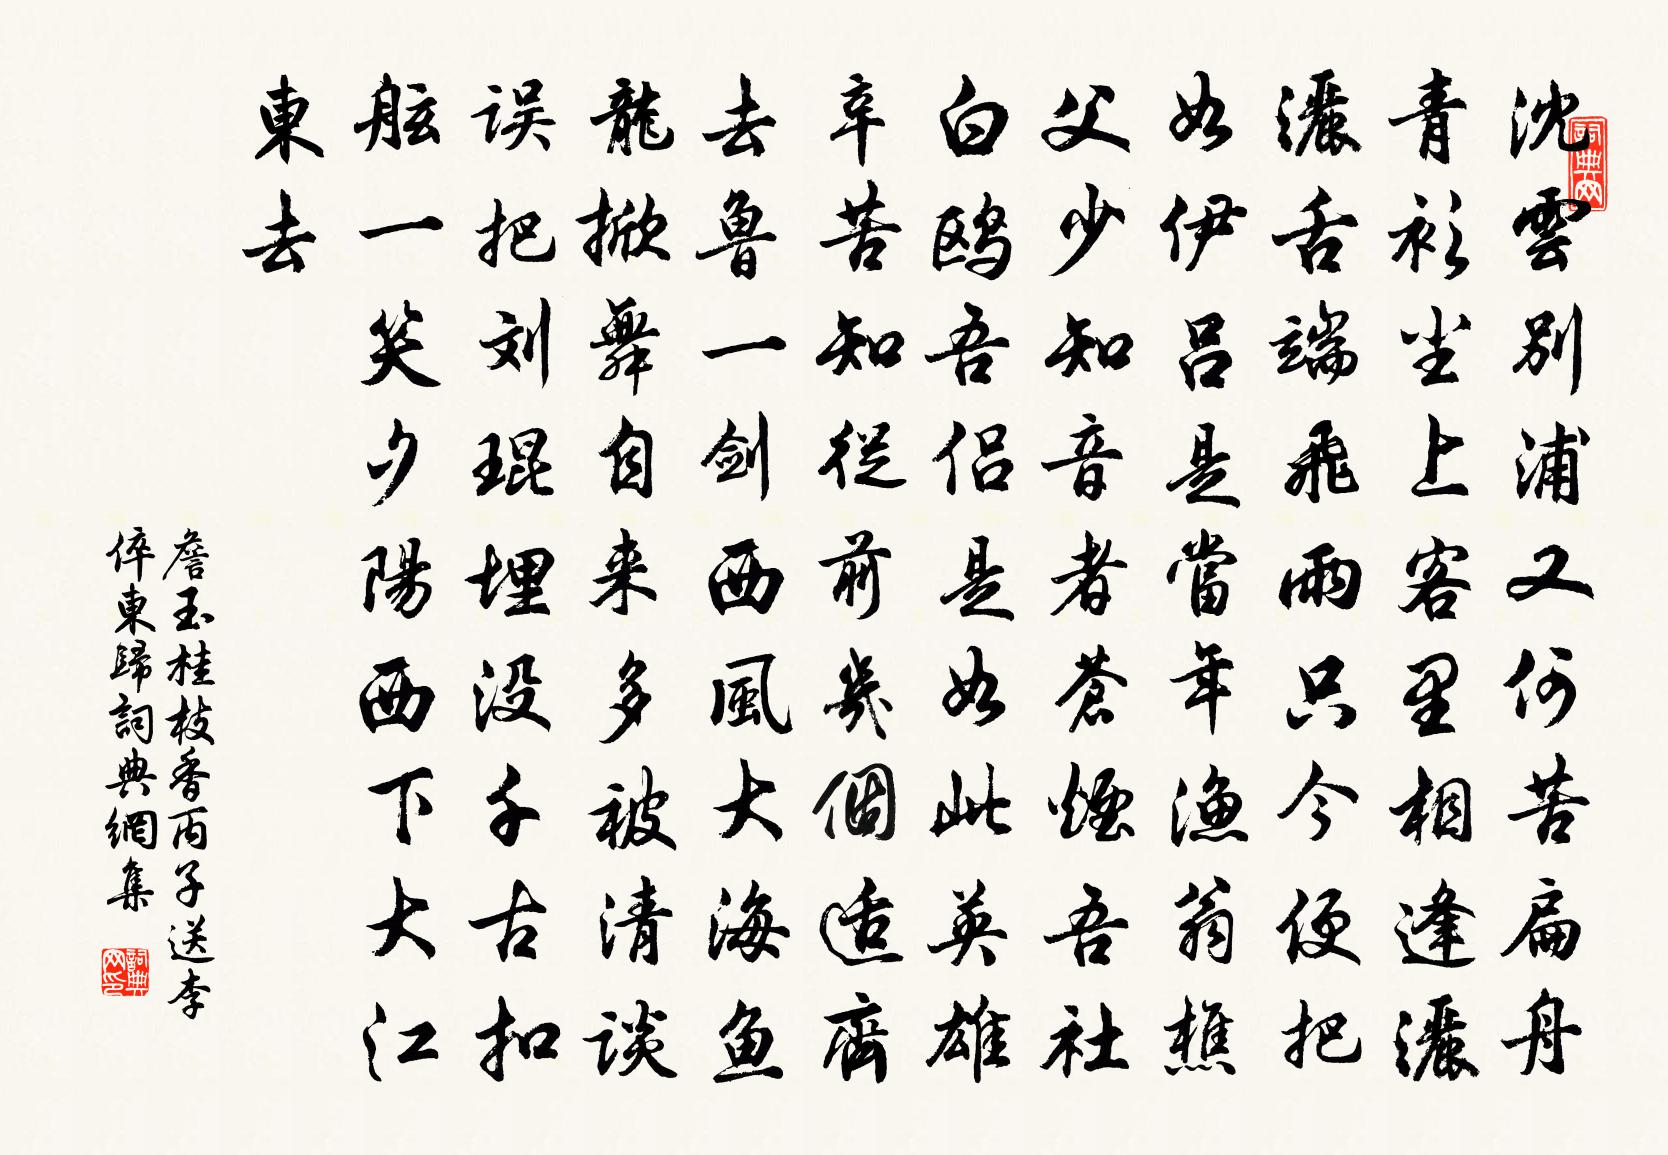 沈雲別浦又何苦扁舟
青衫尘土客里相逢灑
灑舌端飛雨只今便把
如伊吕是當年漁翁樵
父少知音者蒼煙吾社
白鸥吾侣是如此英雄
辛苦知從前幾個适齊
去魯一劍西風大海魚
龍掀舞自来多被清談
误把刘琨埋没千古扣
舷一笑夕陽西下大江
東去
詹玉桂枝香丙子送李
倅東歸詞典網集
詞典网
詞典网印